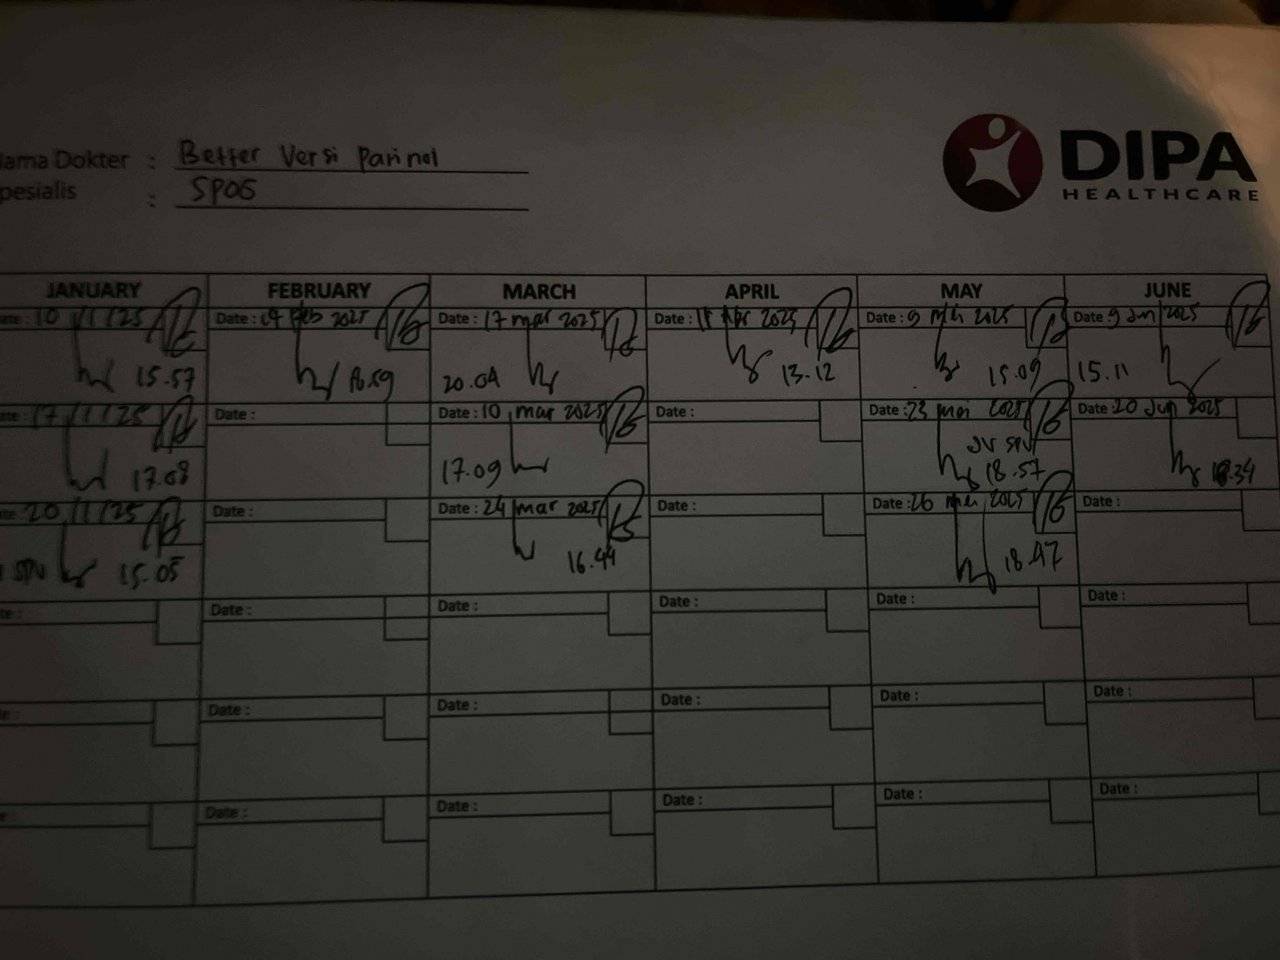 DIPA
HEALTHCARE
ama Dokter : Better Versi Parinol
pesialis : SPOG
JANUARY FEBRUARY MARCH APRIL MAY JUNE
ate : 10/1/25 Date : Feb 2025 Date : 17 mar 2025 Date : Apr 2025 Date : 9 Mei 2025 Date 9 Jun 2025
15.57 20.04 13.12 15.09 15.11
ate : 17/1/25 Date : Date : 10 mar 2025 Date : Date : 23 mei 2025 Date : 20 Jun 2025
17.08 17.09 JV SPV 18.57
ate : 20/1/25 Date : Date : 24 mar 2025 Date : Date : 26 mei 2025 Date :
SPV 15.05 16.44 18.47
te : Date : Date : Date : Date : Date :
te : Date : Date : Date : Date : Date :
e : Date : Date : Date : Date : Date :